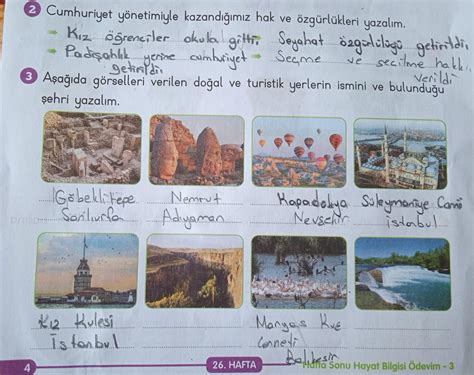 2 Cumhuriyet yönetimiyle kazandığımız hak ve özgürlükleri yazalım.
Kız öğrenciler okula gitti. Seyahat özgürlülüğü getirildi.
Padişahlık yerine cumhuriyet getirildi.
Seçme ve seçilme hakkı verildi
3 Aşağıda görselleri verilen doğal ve turistik yerlerin ismini ve bulunduğu
şehri yazalım.
Göbekli tepe Nemrut Kapadokya Süleymaniye Camii
Şanlıurfa Adıyaman Nevşehir İstanbul
Kız Kulesi
İstanbul
Manyas Kuş
Cenneti
Balıkesir
4 26. HAFTA Hafta Sonu Hayat Bilgisi Ödevim - 3